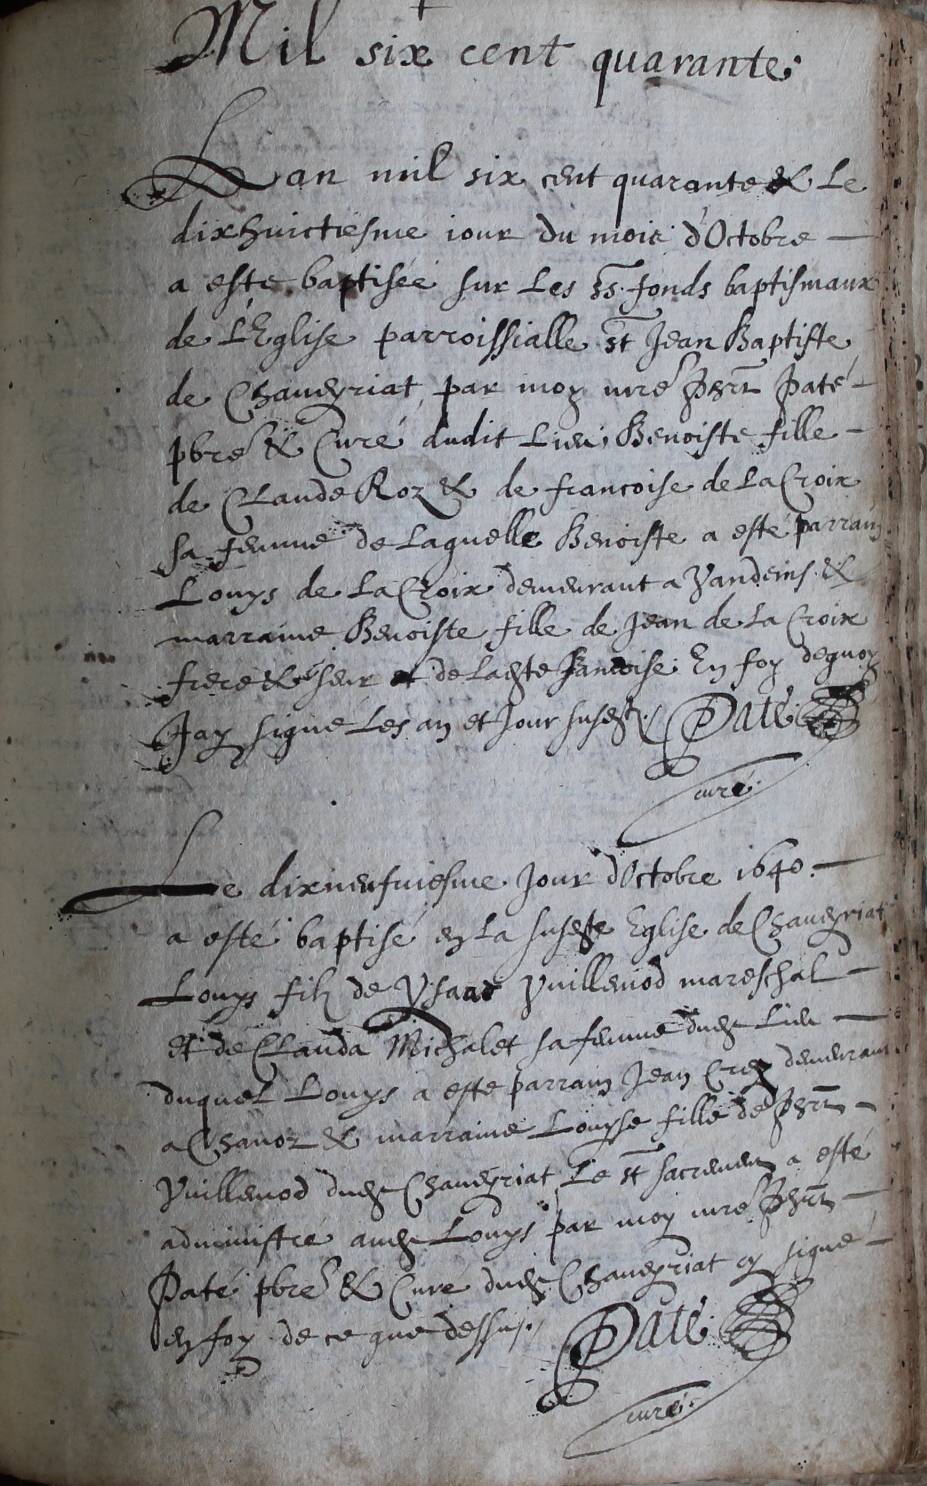 Mil six cent quarante
Lan mil six cent quarante & Le
dixhuictiesme iour du mois d'Octobre
a este baptisée sur Les Sts. fonds baptismaux
de L'Eglise parroissialle St Jean Baptiste
de Chaveyriat, par moy mre Phrt Paté
pbre & Curé dudit Lieu Benoiste fille
de Claude Roz & de francoise de LaCroix
sa femme de Laquelle Benoiste a esté parrain
Louys de LaCroix demeurant a Vandeins &
marraine Benoiste fille de Jean de La Croix
frere & seur de Ladte francoise. En foy dequoy
Jay signe Les an et Jour susdt. Paté
curé.
Le dixneufuiesme Jour dOctobre 1640.
a esté baptisé en La susdte Eglise de Chaveyriat
Louys filz de Ysaac Vuillemod mareschal
et de Clauda Michalet sa femme dudt Lieu
duquel Louys a este parrain Jean demeurant
a Chanoz & marraine Louyse fille de Phrt
Vuillemod dudt Chaveyriat, Le St sacrement a esté
administré audt Louys par moy mre Phrt
Paté pbre & Curé dudt Chaveyriat cy signé
en foy de ce que dessus. Paté
curé.